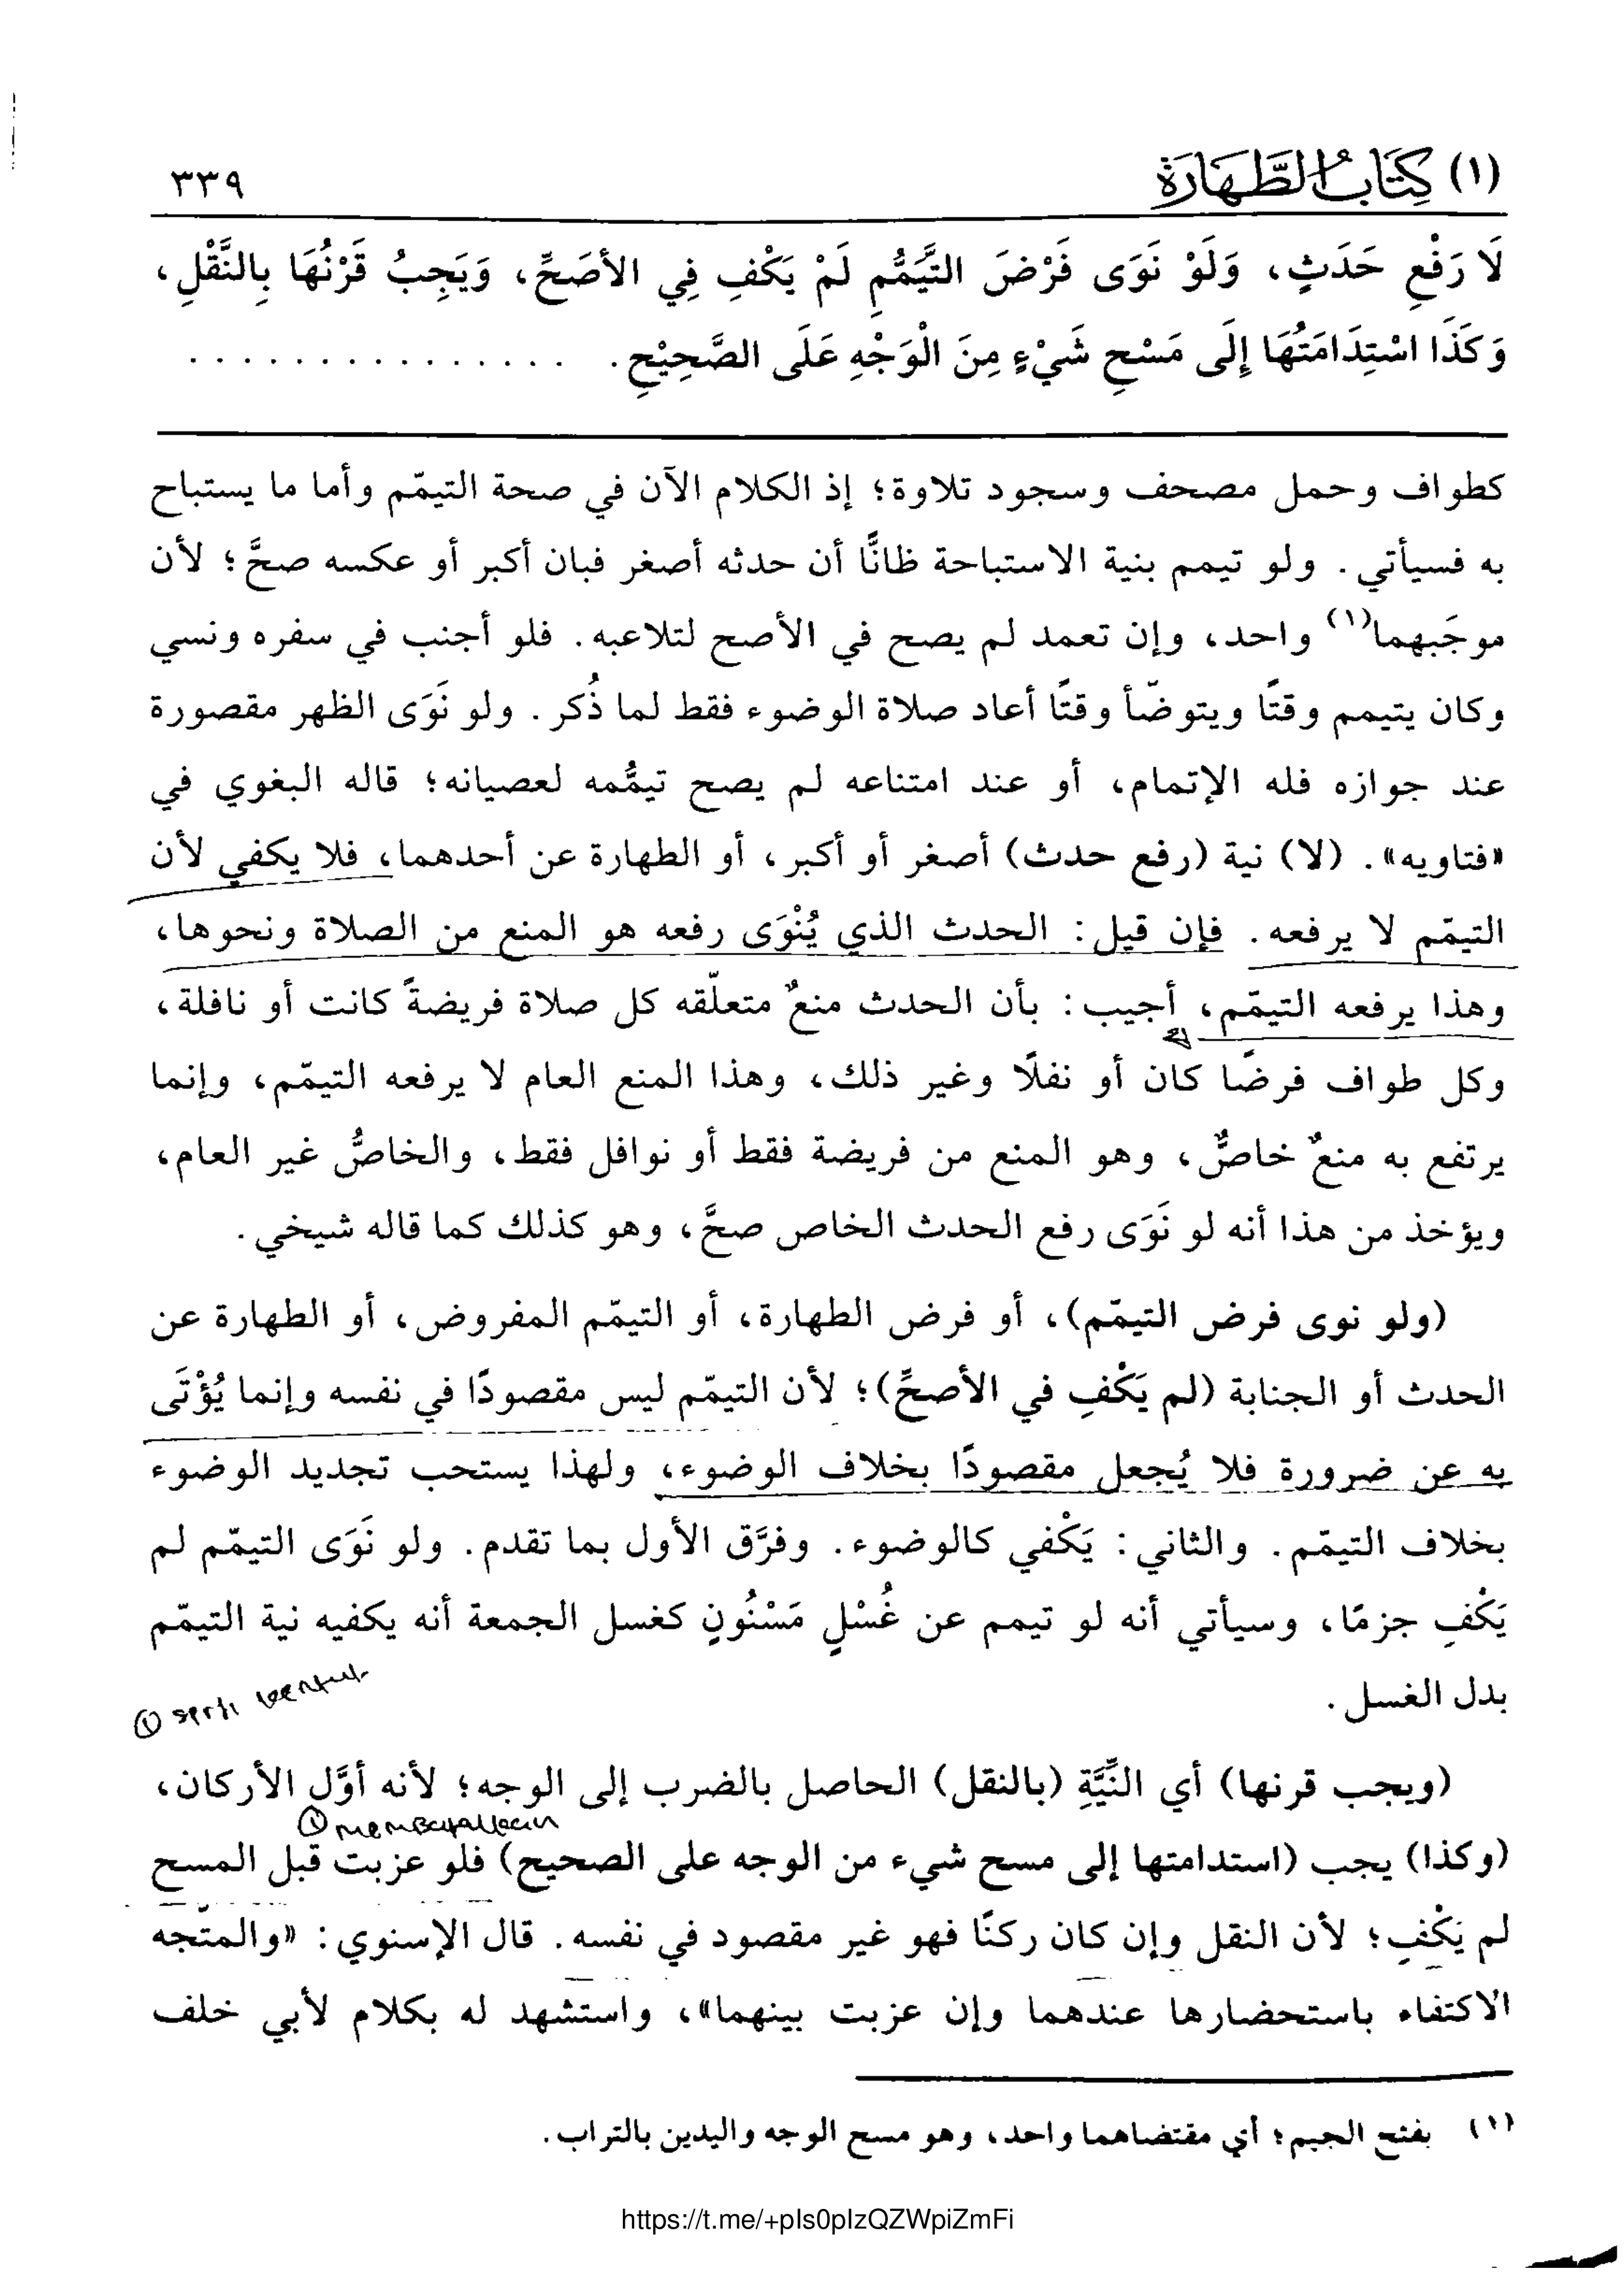 (١) كِتَابُ الطَّهَارَةِ ٣٣٩
لَا رَفْعِ حَدَثٍ، وَلَوْ نَوَى فَرْضَ التَّيَمُّمِ لَمْ يَكْفِ فِي الأَصَحِّ، وَيَجِبُ قَرْنُهَا بِالنَّقْلِ،
وَكَذَا اسْتِدَامَتُهَا إِلَى مَسْحِ شَيْءٍ مِنَ الْوَجْهِ عَلَى الصَّحِيْحِ. . . . . . . . . . . . . . . .
كطواف وحمل مصحف وسجود تلاوة؛ إذ الكلام الآن في صحة التيمّم وأما ما يستباح
به فسيأتي. ولو تيمم بنية الاستباحة ظانًّا أن حدثه أصغر فبان أكبر أو عكسه صحَّ؛ لأن
موجَبهما(١) واحد، وإن تعمد لم يصح في الأصح لتلاعبه. فلو أجنب في سفره ونسي
وكان يتيمم وقتًا ويتوضّأ وقتًا أعاد صلاة الوضوء فقط لما ذُكر. ولو نَوَى الظهر مقصورة
عند جوازه فله الإتمام، أو عند امتناعه لم يصح تيمُّمه لعصيانه؛ قاله البغوي في
«فتاويه». (لا) نية (رفع حدث) أصغر أو أكبر، أو الطهارة عن أحدهما، فلا يكفي لأن
التيمّم لا يرفعه. فإن قيل: الحدث الذي يُنْوَى رفعه هو المنع من الصلاة ونحوها،
وهذا يرفعه التيمّم، أجيب: بأن الحدث منعٌ متعلّقه كل صلاة فريضةً كانت أو نافلة،
وكل طواف فرضًا كان أو نفلًا وغير ذلك، وهذا المنع العام لا يرفعه التيمّم، وإنما
يرتفع به منعٌ خاصٌّ، وهو المنع من فريضة فقط أو نوافل فقط، والخاصُّ غير العام،
ويؤخذ من هذا أنه لو نَوَى رفع الحدث الخاص صحَّ، وهو كذلك كما قاله شيخي.
(ولو نوى فرض التيمّم)، أو فرض الطهارة، أو التيمّم المفروض، أو الطهارة عن
الحدث أو الجنابة (لم يَكْفِ في الأصحِّ)؛ لأن التيمّم ليس مقصودًا في نفسه وإنما يُؤْتَى
به عن ضرورة فلا يُجعل مقصودًا بخلاف الوضوء، ولهذا يستحب تجديد الوضوء
بخلاف التيمّم. والثاني: يَكْفي كالوضوء. وفرَّق الأول بما تقدم. ولو نَوَى التيمّم لم
يَكْفِ جزمًا، وسيأتي أنه لو تيمم عن غُسْلٍ مَسْنُونٍ كغسل الجمعة أنه يكفيه نية التيمّم
بدل الغسل.
(ويجب قرنها) أي النِّيَّةِ (بالنقل) الحاصل بالضرب إلى الوجه؛ لأنه أوَّل الأركان،
(وكذا) يجب (استدامتها إلى مسح شيء من الوجه على الصحيح) فلو عزبت قبل المسح
لم يَكْفِ؛ لأن النقل وإن كان ركنًا فهو غير مقصود في نفسه. قال الإسنوي: «والمتّجه
الاكتفاء باستحضارها عندهما وإن عزبت بينهما»، واستشهد له بكلام لأبي خلف
(١) بفتح الجيم؛ أي مقتضاهما واحد، وهو مسح الوجه واليدين بالتراب.
https://t.me/+pIs0pIzQZWpiZmFi